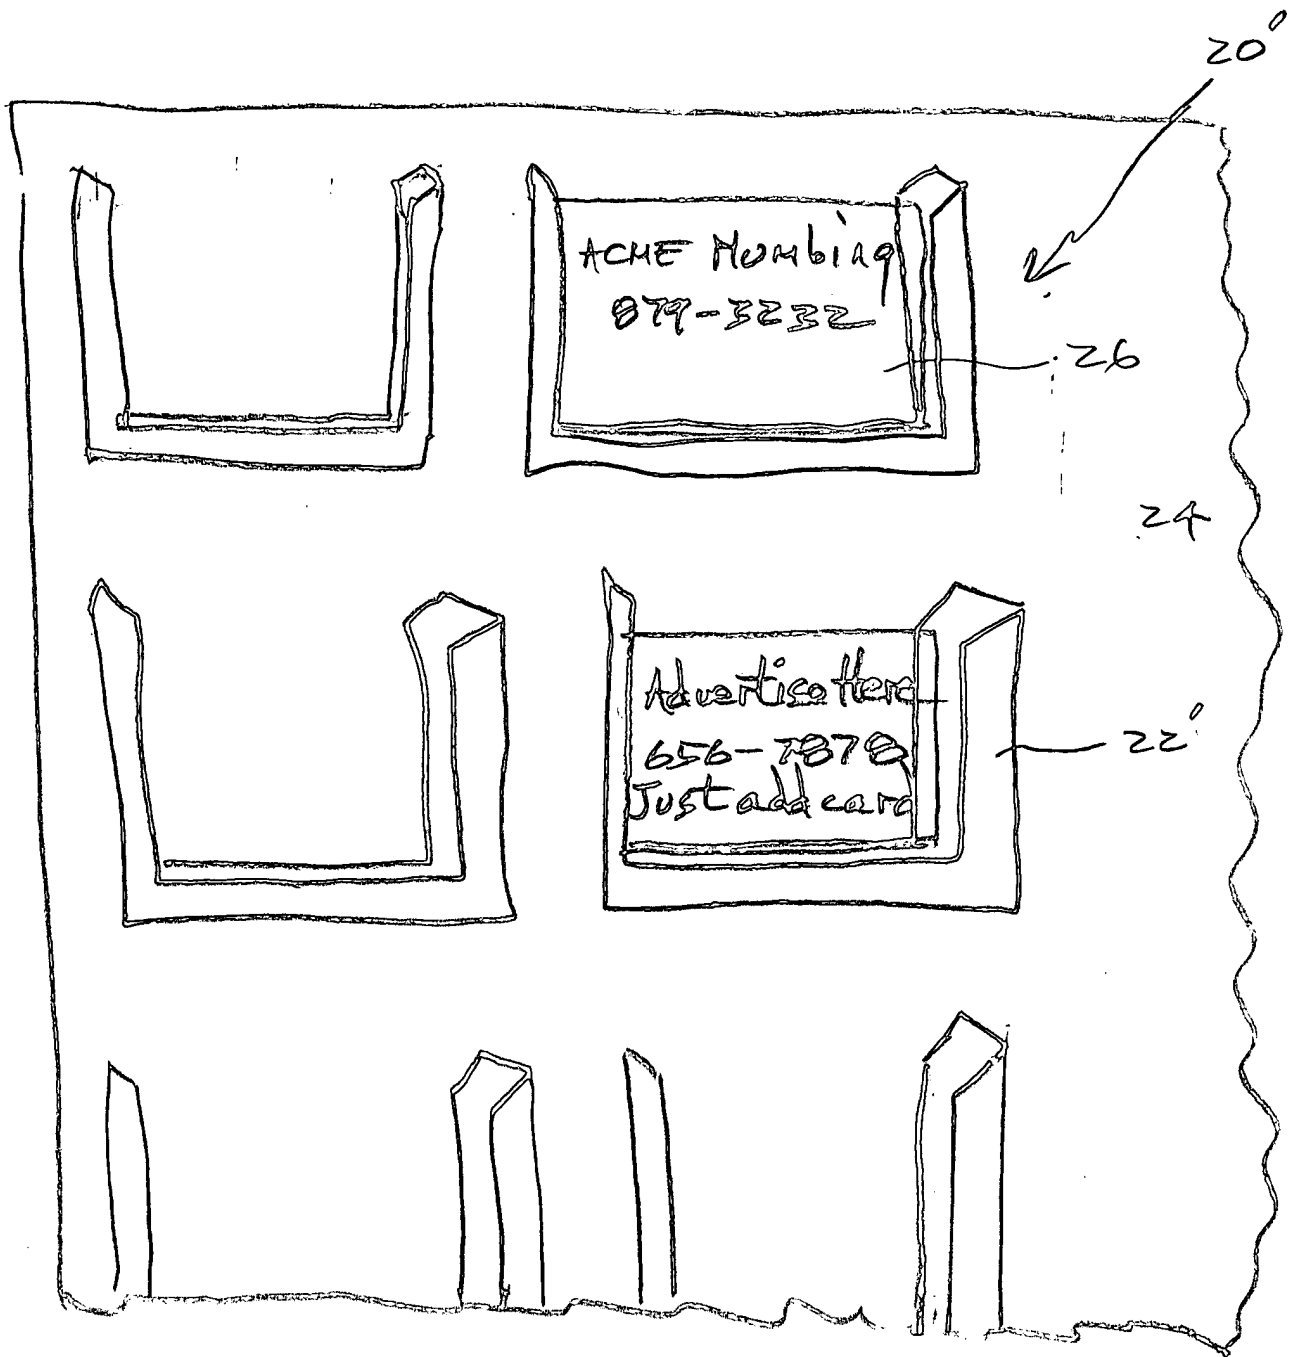 20'
ACME Plumbing
879-3232
26
24
Advertise Here
656-7878
Just add card
22'